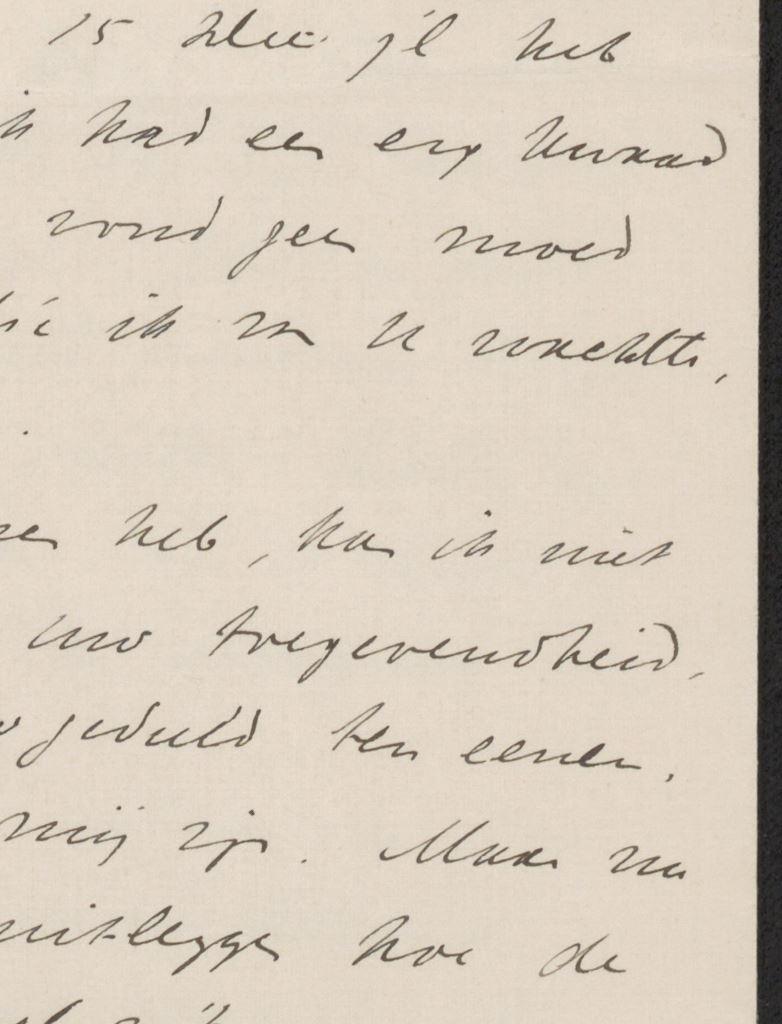 15 Dec. jl heb
ik had een erg kwaad
vond geen moed
die ik van U wachtte,
heb, kan ik niet
uw toegevendheid,
geduld ten eenen.
mij zijn. Maar nu
uitleggen hoe de